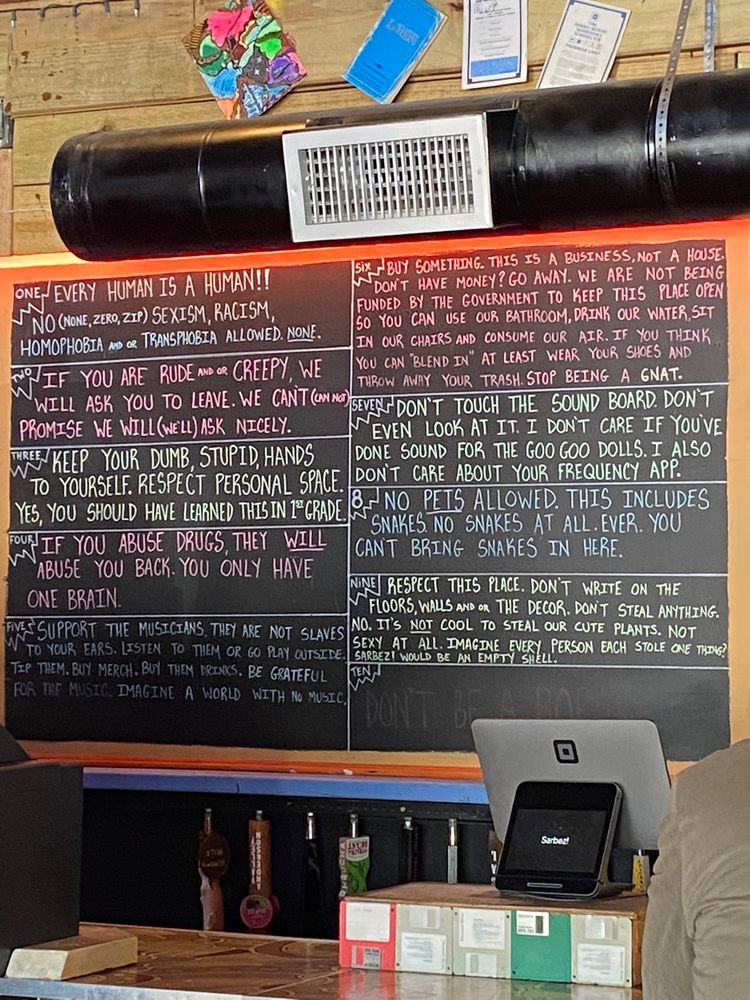 ONE
EVERY HUMAN IS A HUMAN!!
NO (NONE, ZERO, ZIP) SEXISM, RACISM,
HOMOPHOBIA AND OR TRANSPHOBIA ALLOWED. NONE.
TWO
IF YOU ARE RUDE AND OR CREEPY, WE
WILL ASK YOU TO LEAVE. WE CAN'T (CAN NOT)
PROMISE WE WILL (WE'LL) ASK NICELY.
THREE
KEEP YOUR DUMB, STUPID, HANDS
TO YOURSELF. RESPECT PERSONAL SPACE.
YES, YOU SHOULD HAVE LEARNED THIS IN 1ST GRADE.
FOUR
IF YOU ABUSE DRUGS, THEY WILL
ABUSE YOU BACK. YOU ONLY HAVE
ONE BRAIN.
FIVE
SUPPORT THE MUSICIANS. THEY ARE NOT SLAVES
TO YOUR EARS. LISTEN TO THEM OR GO PLAY OUTSIDE.
TIP THEM. BUY MERCH. BUY THEM DRINKS. BE GRATEFUL
FOR THE MUSIC. IMAGINE A WORLD WITH NO MUSIC.
SIX
BUY SOMETHING. THIS IS A BUSINESS, NOT A HOUSE.
DON'T HAVE MONEY? GO AWAY. WE ARE NOT BEING
FUNDED BY THE GOVERNMENT TO KEEP THIS PLACE OPEN
SO YOU CAN USE OUR BATHROOM, DRINK OUR WATER, SIT
IN OUR CHAIRS AND CONSUME OUR AIR. IF YOU THINK
YOU CAN "BLEND IN" AT LEAST WEAR YOUR SHOES AND
THROW AWAY YOUR TRASH. STOP BEING A GNAT.
SEVEN
DON'T TOUCH THE SOUND BOARD. DON'T
EVEN LOOK AT IT. I DON'T CARE IF YOU'VE
DONE SOUND FOR THE GOO GOO DOLLS. I ALSO
DON'T CARE ABOUT YOUR FREQUENCY APP.
8
NO PETS ALLOWED. THIS INCLUDES
SNAKES. NO SNAKES AT ALL. EVER. YOU
CAN'T BRING SNAKES IN HERE.
NINE
RESPECT THIS PLACE. DON'T WRITE ON THE
FLOORS, WALLS AND OR THE DECOR. DON'T STEAL ANYTHING.
NO. IT'S NOT COOL TO STEAL OUR CUTE PLANTS. NOT
SEXY AT ALL. IMAGINE EVERY PERSON EACH STOLE ONE THING?
SARBEZ! WOULD BE AN EMPTY SHELL.
TEN
DON'T BE A
Sarbez!